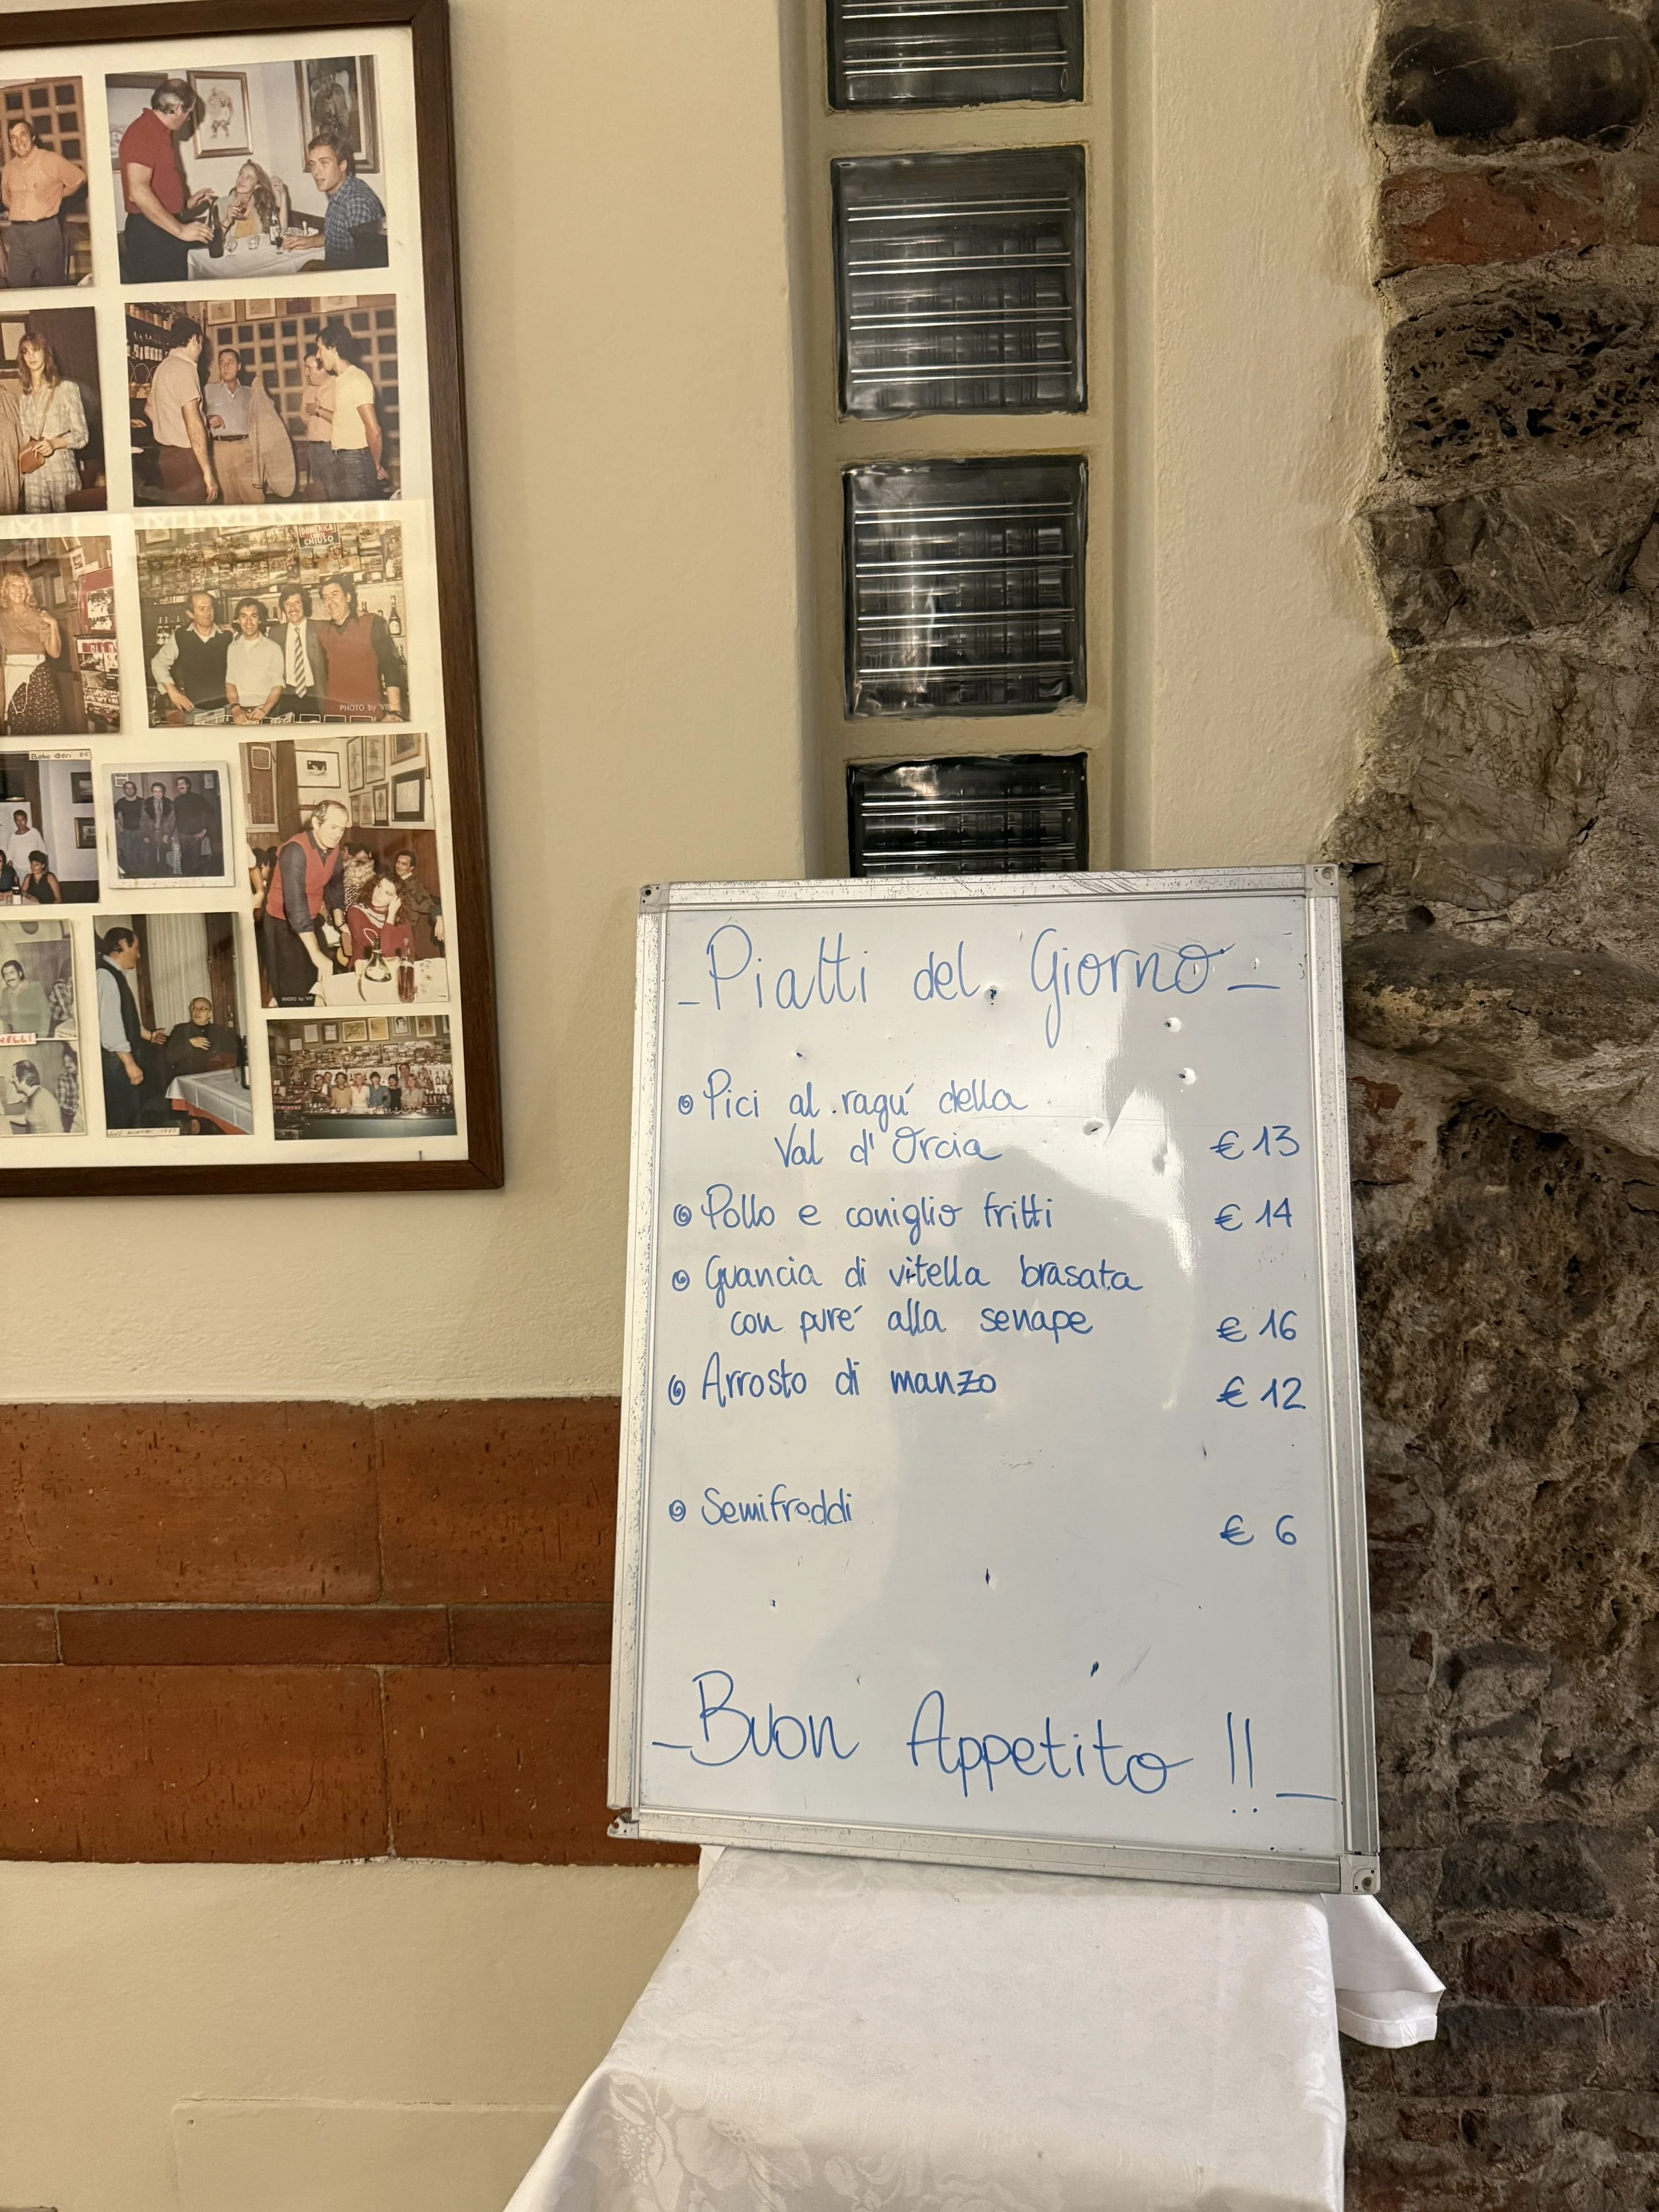 DOMENICA
CHIUSO
PHOTO by VIP
PHOTO by VIP
-Piatti del Giorno-
Pici al ragú della
Val d'Orcia € 13
Pollo e coniglio fritti € 14
Guancia di vitella brasata
con puré alla senape € 16
Arrosto di manzo € 12
Semifreddi € 6
-Buon Appetito !!-